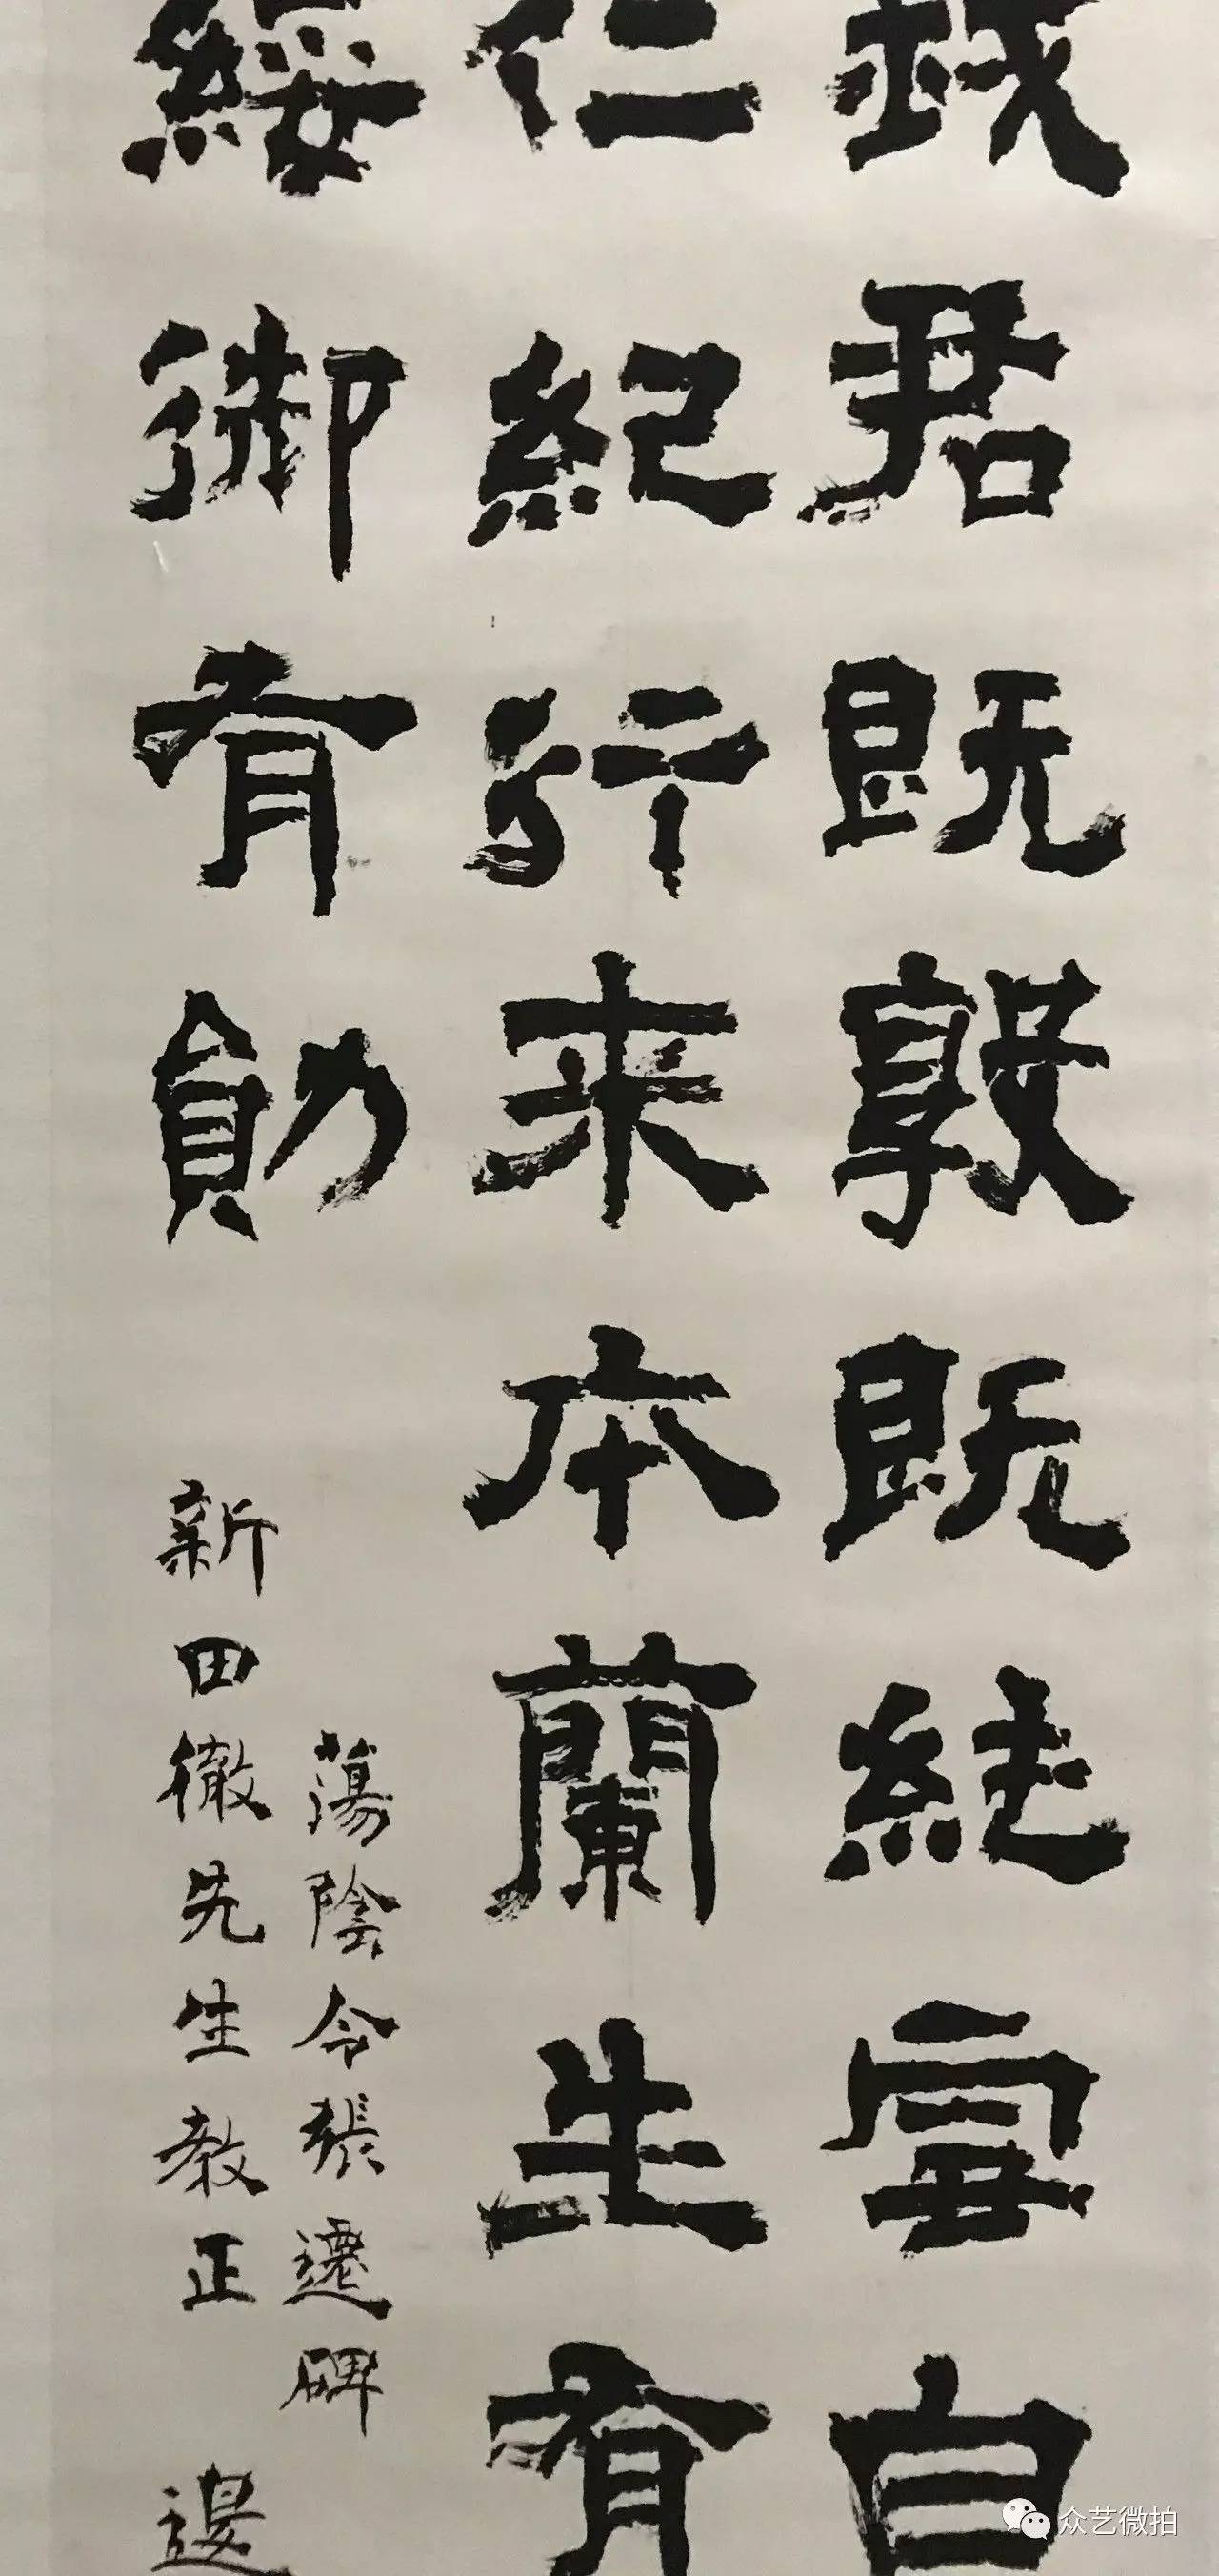 我君既敦既純雪白
仁紀行来本蘭生有
綏御有勛
蕩陰令張遷碑
新田徹先生教正
众艺微拍